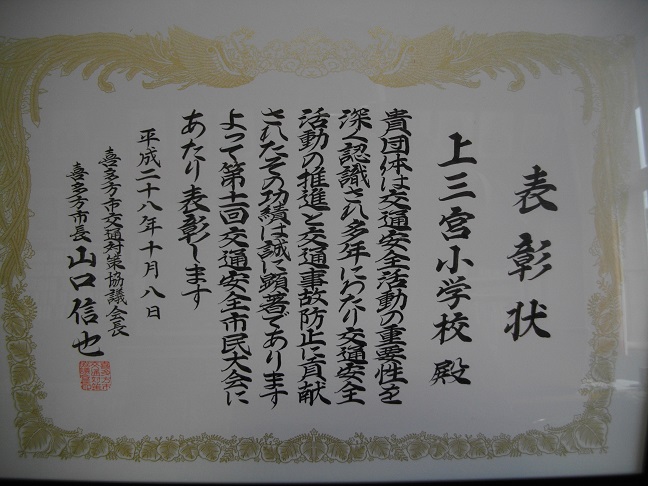 表彰状
上三宮小学校 殿
貴団体は交通安全活動の重要性を
深く認識され多年にわたり交通安全
活動の推進と交通事故防止に貢献
されたその功績は誠に顕著であります
よって第十一回交通安全市民大会に
あたり表彰します
平成二十八年十月八日
喜多方市交通対策協議会長
喜多方市長 山口信也